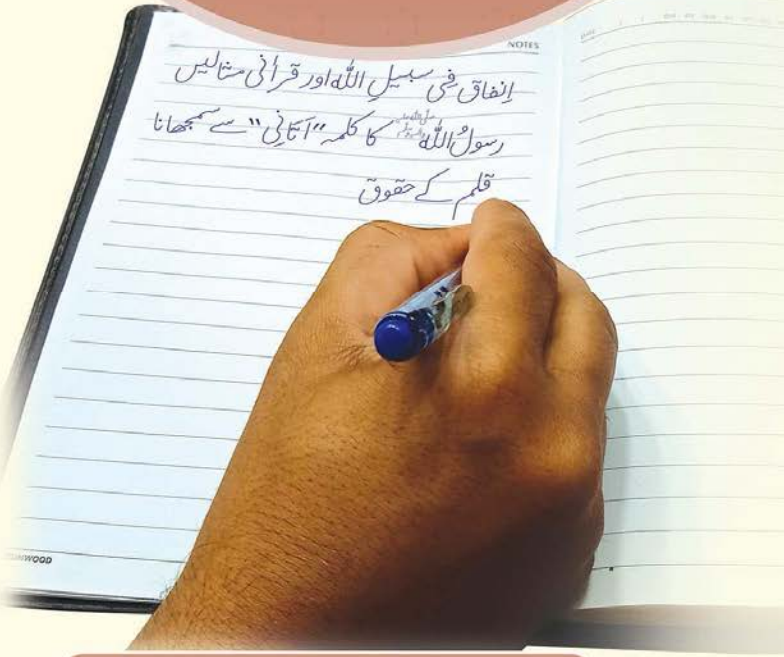 NOTES
اِنفاق فِی سبیلِ اللہ اور قرآنی مثالیں
رسولُ اللہ صلَّی اللہ علیہ واٰلہٖ وسلَّم کا کلمہ "اَتَانِی" سے سمجھانا
قلم کے حقوق